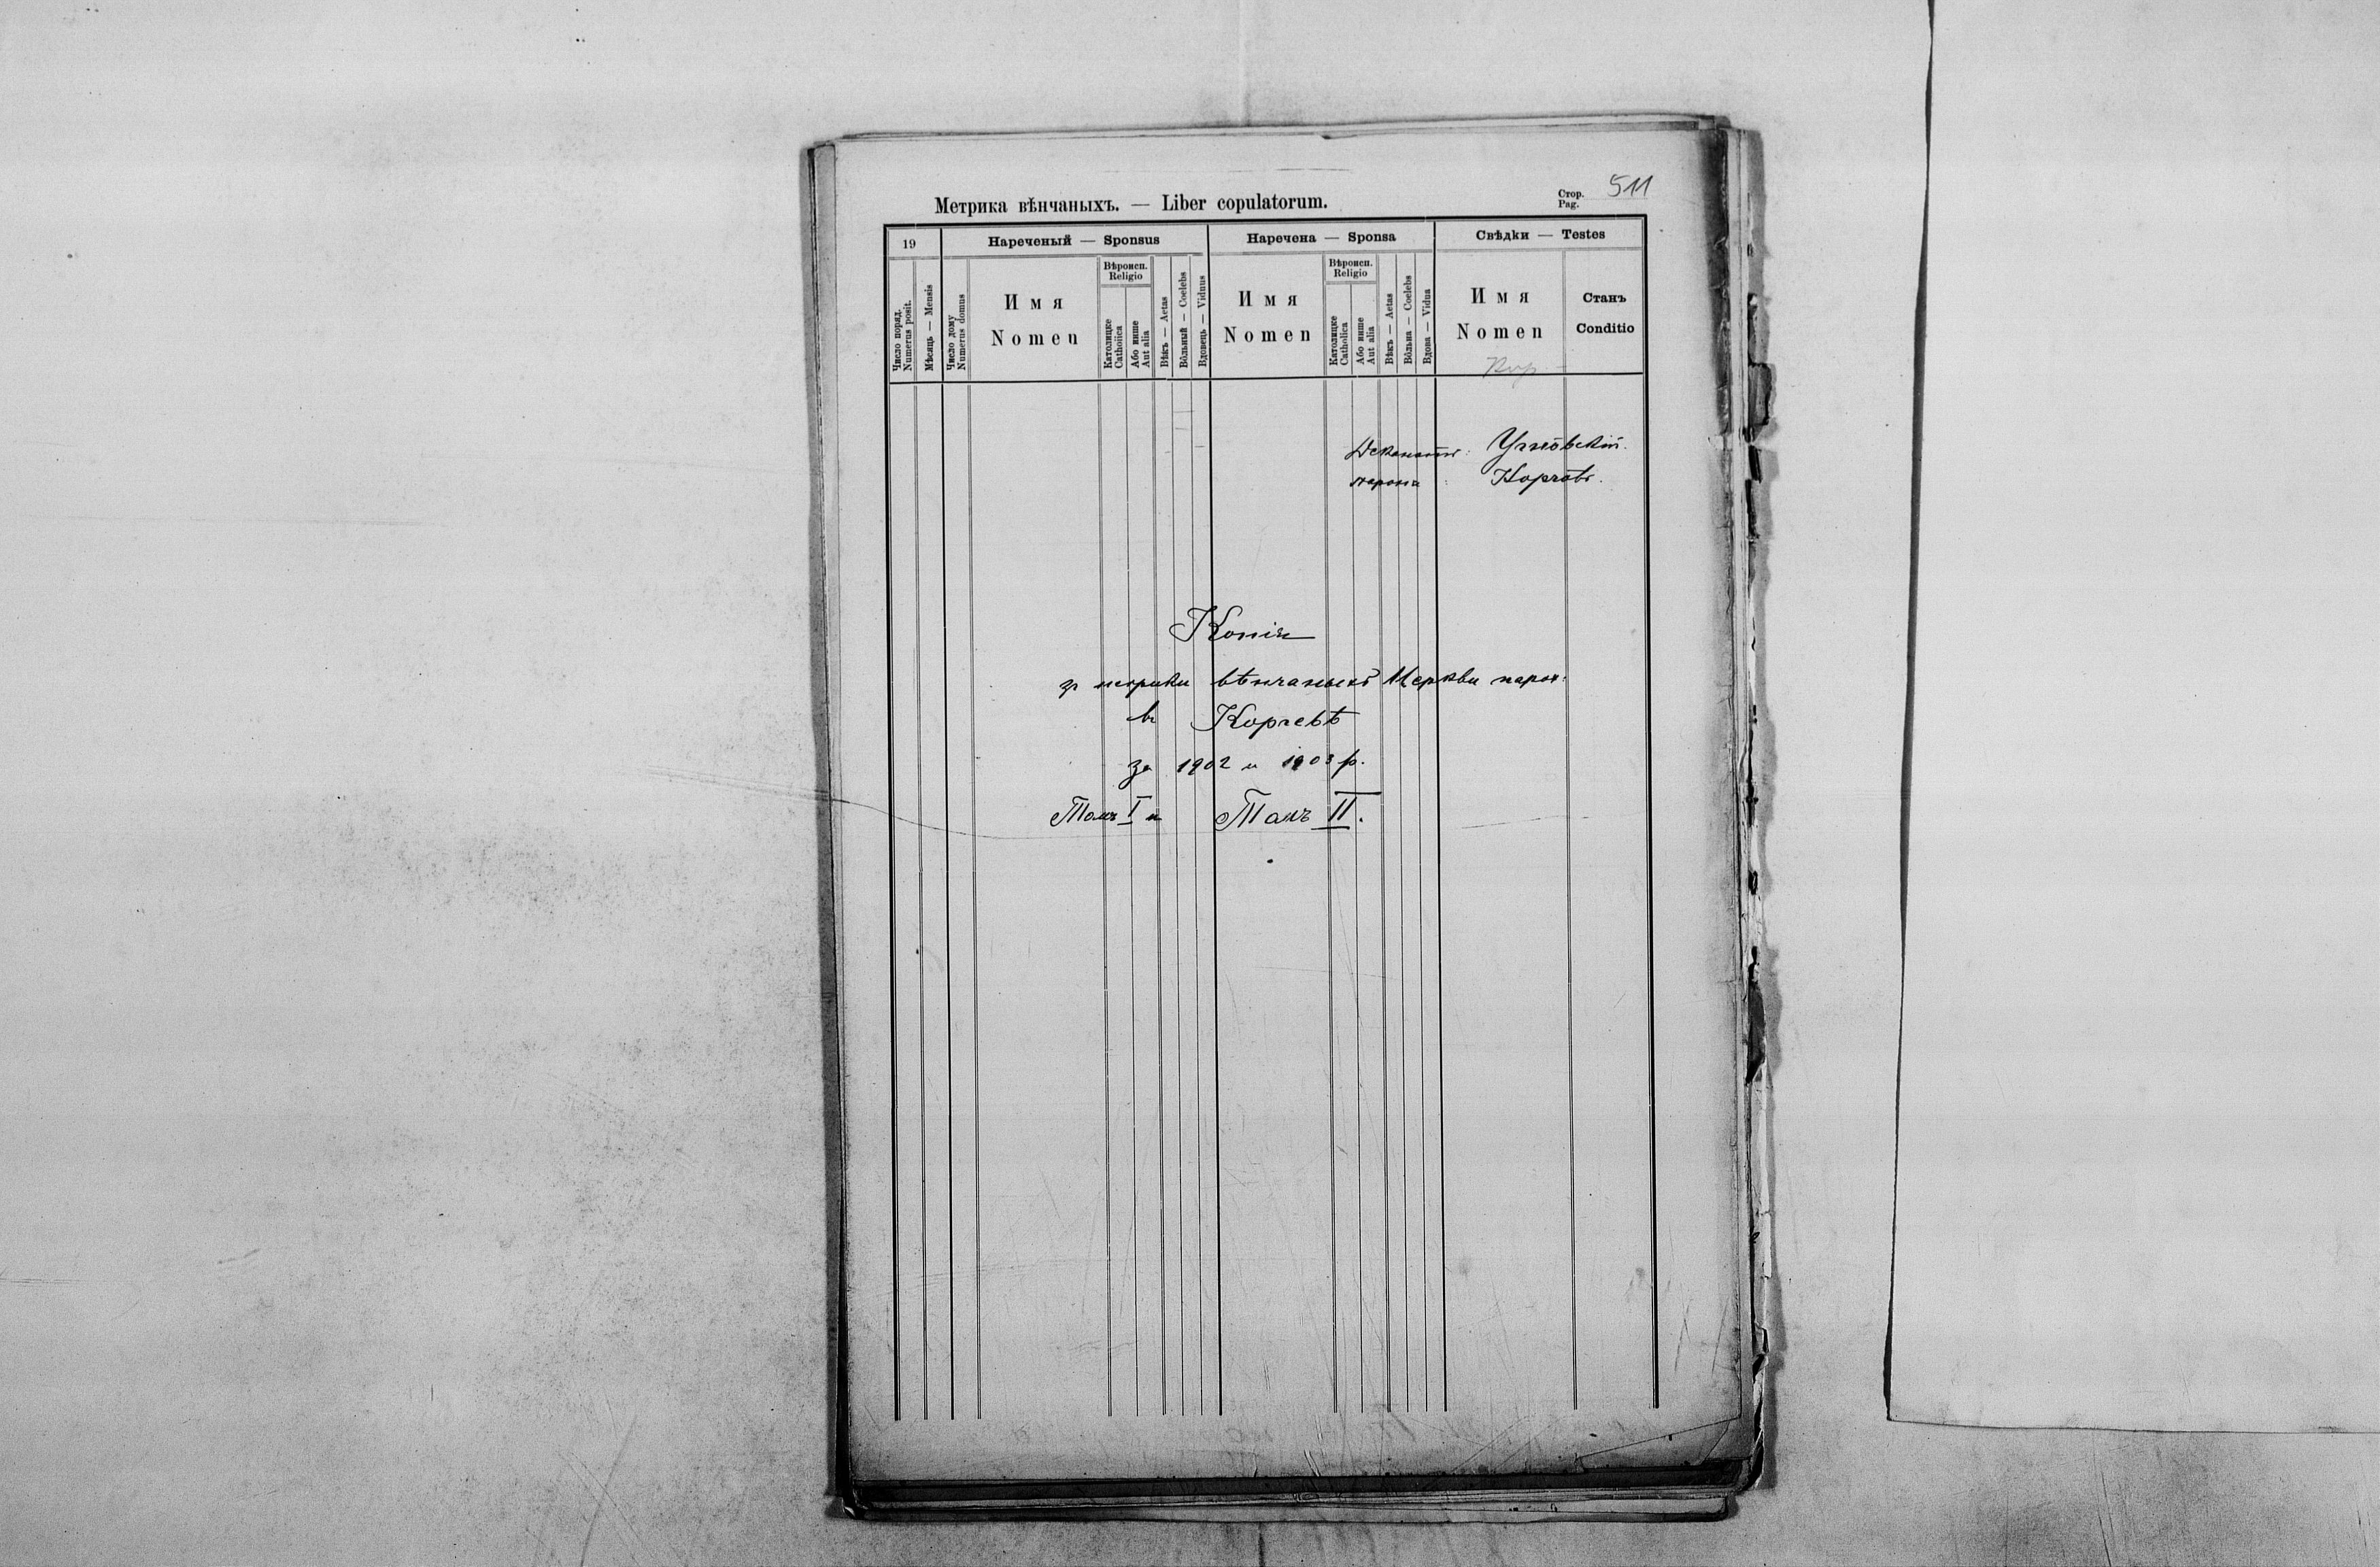 Метрика вѣнчаныхъ. — Liber copulatorum.
Стор.
Pag.
511
19
Нареченый — Sponsus
Наречена — Sponsa
Свѣдки — Testes
Число поряд.
Numerus posit.
Мѣсяць — Mensis
Число дому
Numerus domus
Имя
Nomen
Вѣроисп.
Religio
Католицке
Catholica
Або инше
Aut alia
Вѣкъ — Aetas
Вôльный — Coelebs
Вдовець — Viduus
Имя
Nomen
Вѣроисп.
Religio
Католицке
Catholica
Або инше
Aut alia
Вѣкъ — Aetas
Вôльна — Coelebs
Вдова — Vidua
Имя
Nomen
Станъ
Conditio
Деканатъ: Угнôвскій.
парохія : Корчôвъ.
Копія
зъ метрики вѣнчаныхъ Церкви парох:
въ Корчевѣ
за 1902 и 1903 р.
Томъ I и Томъ II.